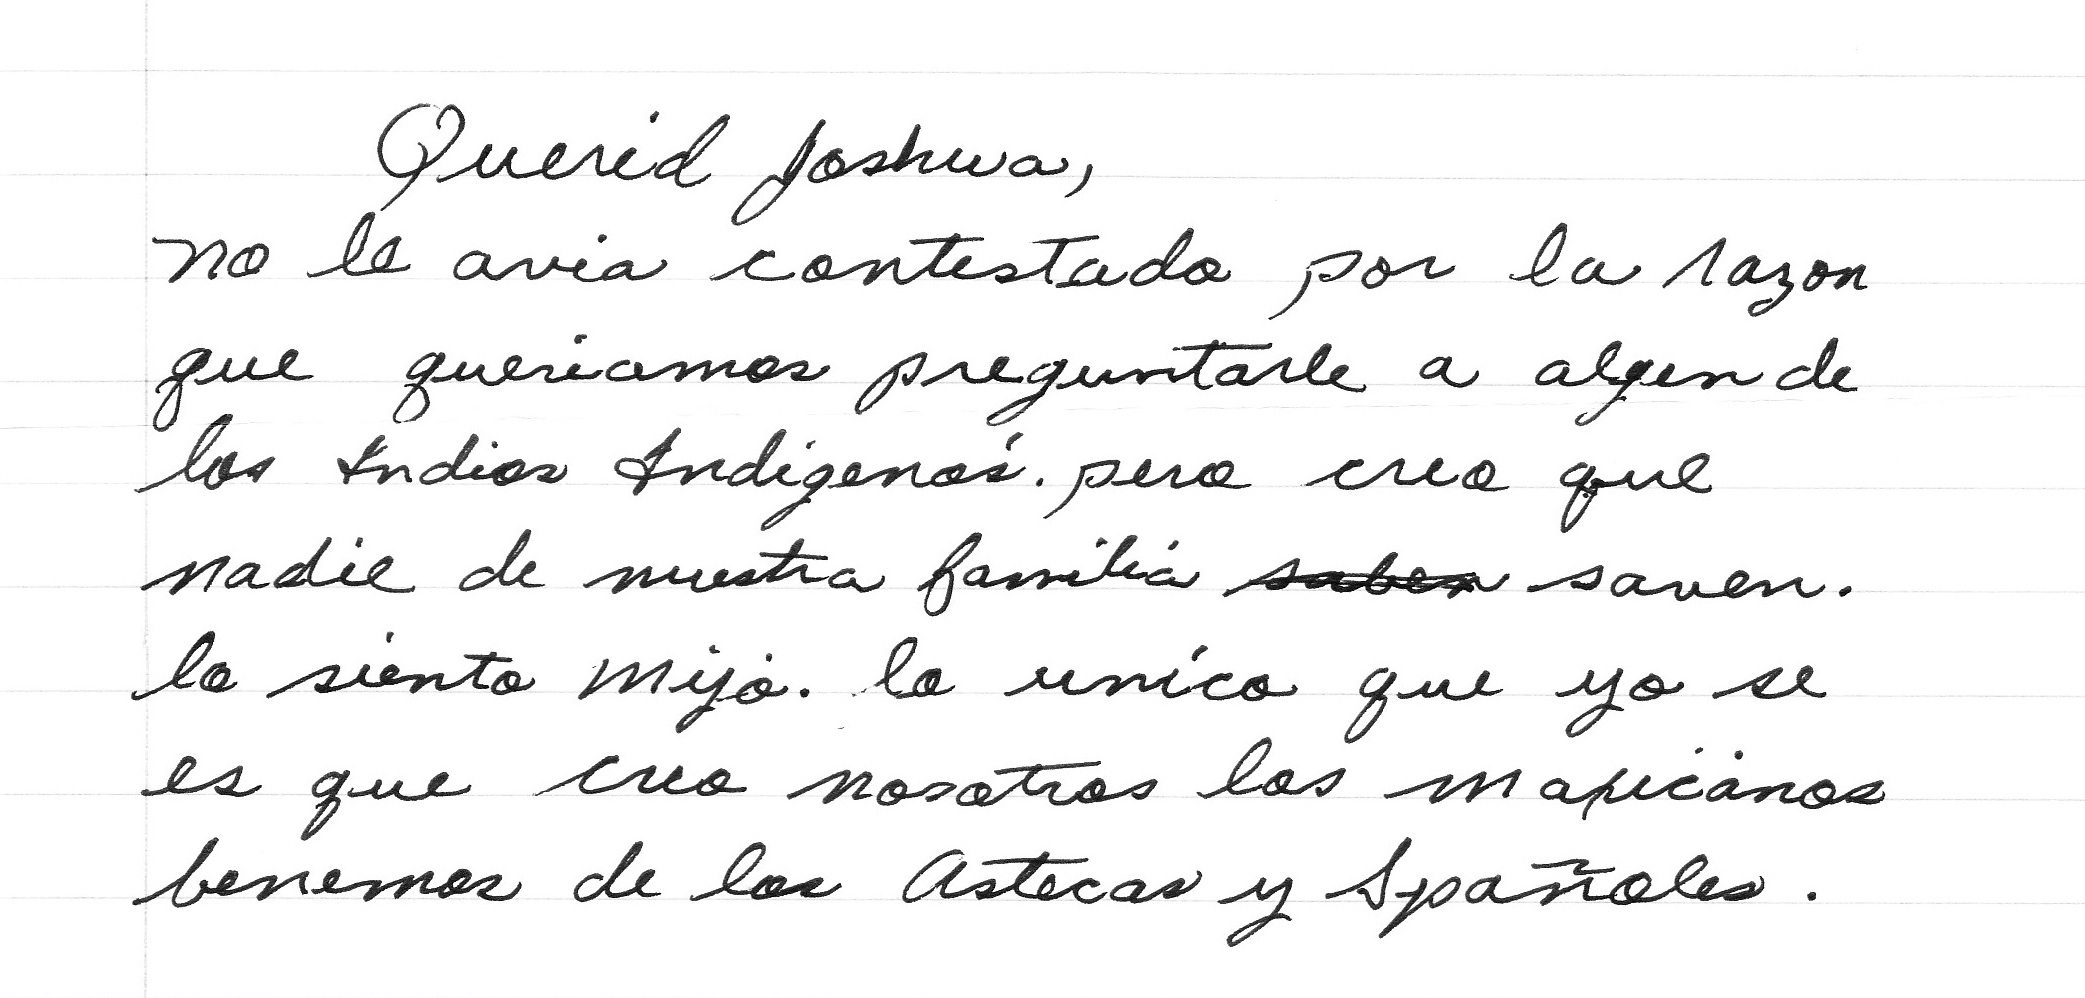 Querid Joshua,
no le avia contestado por la razon
que queriamos preguntarle a algen de
los Indios Indigenos. pero creo que
nadie de nuestra familia saben saven.
lo siento mijo. lo unico que yo se
es que creo nosotros los mapicanos
benemos de los Astecas y Spañoles.